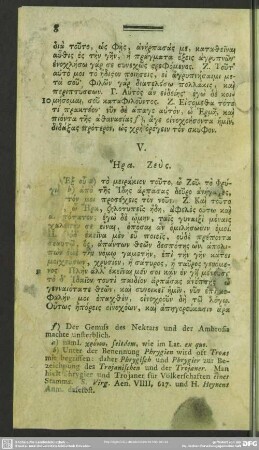 8
διὰ τοῦτο, ὡς φῂς, ἀνήρπασάς με, καταθεῖναι
αὖθις ἐς τὴν γῆν, ἢ πράγματα ἕξεις ἀγρυπνῶν·
ἐνοχλήσω γάρ σε συνεχῶς στρεφόμενος. Ζ. Τοῦτ'
αὐτό μοι τὸ ἥδιστον ποιήσεις, εἰ ἀγρυπνήσαιμι με-
τὰ σοῦ· φιλῶν γὰρ διατελέσω πολλάκις, καὶ
περιπτύσσων. Γ. Αὐτὸς ἂν εἰδείης· ἐγὼ δὲ κοι-
μήσομαι, σοῦ καταφιλοῦντος. Ζ. Εἰσόμεθα τότε
τί πρακτέον· νῦν δὲ ἄπαγε αὐτὸν, ὦ Ἑρμῆ, καὶ
πιόντα τῆς ἀθανασίας f), ἄγε οἰνοχοήσοντα ἡμῖν,
διδάξας πρότερον, ὡς χρὴ ὀρέγειν τὸν σκύφον.
V.
Ἥρα. Ζεύς.
τὸ μειράκιον τοῦτο, ὦ Ζεῦ, τὸ Φρύ-
ἀπὸ τῆς Ἴδης ἁρπάσας δεῦρο ἀνήγαγες,
μοι προσέχεις τὸν νοῦν. Ζ. Καὶ τοῦτο
Ἥρα, ζηλοτυπεῖς ἤδη, ἀφελὲς οὕτω καὶ
ἐγὼ δὲ ᾤμην ταῖς γυναιξὶ μόναις
σε εἶναι, ὁπόσαι ἂν ὁμιλήσωσί μοι.
μὲν εὖ ποιεῖς, οὐδὲ πρέποντα
ἁπάντων θεῶν δεσπότης ὢν, ἀπολι-
τὴν νόμῳ γαμετὴν, ἐπὶ τὴν γῆν κάτει
χρυσίον, ἢ σάτυρος, ἢ ταῦρος γενόμενος.
Πλὴν ἀλλ' ἐκεῖναι μέν σοι κἂν ἐν γῇ μένουσι·
τουτὶ παιδίον ἁρπάσας ἀνέπτης, ὦ
γενναιότατε θεῶν, καὶ συνοικεῖ ἡμῖν,
μοι ἐπαχθὲν, οἰνοχοοῦν δὴ τῷ λόγῳ.
Οὕτως ἠπόρεις οἰνοχόων, καὶ ἀπηγορεύκασιν ἄρα
f) Der Genuß des Nektars und der Ambrosia
machte unsterblich.
a) wie im Lat. ex quo.
b) Unter der Benennung Phrygien wird oft Troas
mit begriffen: daher Phrygisch und Phrygier zur Be-
zeichnung des Trojanischen und der Trojaner. Man
hielt Phrygier und Trojaner für Völkerschaften eines
Stamms. S. Virg. Aen. VIIII, 617. und H. Heynens
Anm. daselbst.